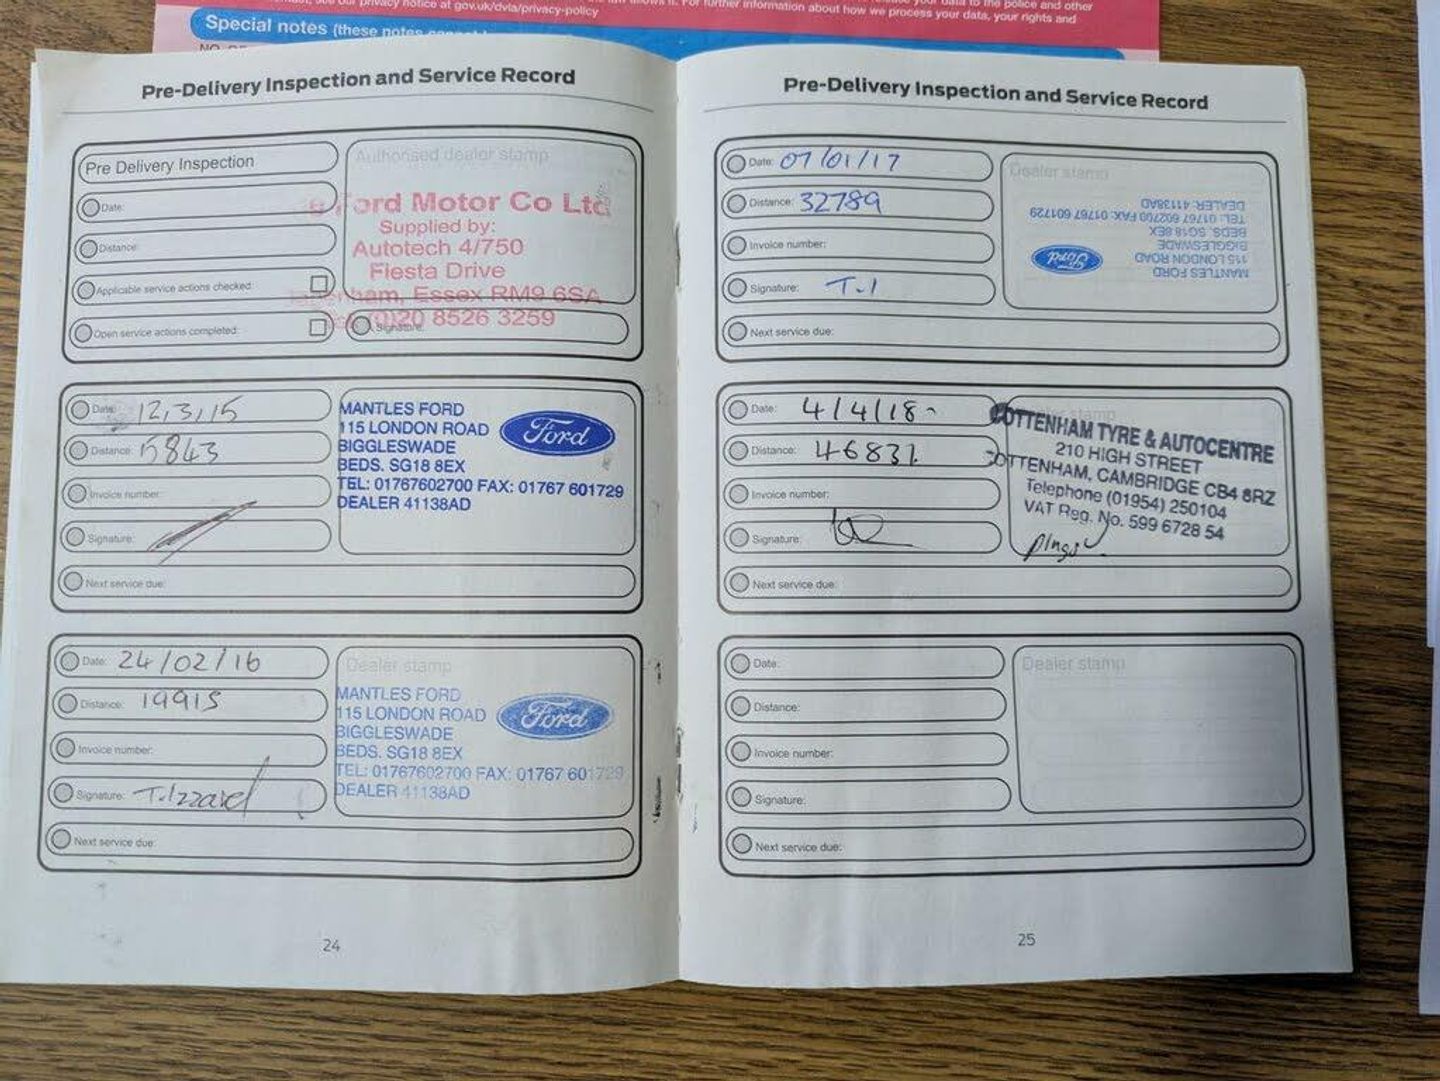 see our privacy notice at gov.uk/dvla/privacy-policy
For further information about how we process your data, your rights and
Special notes (these notes
Pre-Delivery Inspection and Service Record
Pre Delivery Inspection
Authorised dealer stamp
Date:
Distance:
Applicable service actions checked:
Open service actions completed:
Signature:
Ford Motor Co Ltd
Supplied by:
Autotech 4/750
Fiesta Drive
Essex RM9 6SA
020 8526 3259
Date: 12,3,15
Distance: 15843
Invoice number:
Signature:
Next service due:
MANTLES FORD
115 LONDON ROAD
BIGGLESWADE
BEDS. SG18 8EX
TEL: 01767602700 FAX: 01767 601729
DEALER 41138AD
Ford
Date: 24/02/16
Distance: 19915
Invoice number:
Signature: T.Izzard
Next service due:
Dealer stamp
MANTLES FORD
115 LONDON ROAD
BIGGLESWADE
BEDS. SG18 8EX
TEL: 01767602700 FAX: 01767 601729
DEALER 41138AD
Ford
24
Pre-Delivery Inspection and Service Record
Date: 07/01/17
Distance: 32789
Invoice number:
Signature: T.I
Next service due:
Dealer stamp
MANTLES FORD
115 LONDON ROAD
BIGGLESWADE
BEDS. SG18 8EX
TEL: 01767 602700 FAX: 01767 601729
DEALER 41138AD
Ford
Date: 4/4/18
Distance: 46831
Invoice number:
Signature:
Next service due:
COTTENHAM TYRE & AUTOCENTRE
210 HIGH STREET
COTTENHAM, CAMBRIDGE CB4 8RZ
Telephone (01954) 250104
VAT Reg. No. 599 6728 54
Date:
Distance:
Invoice number:
Signature:
Next service due:
Dealer stamp
25